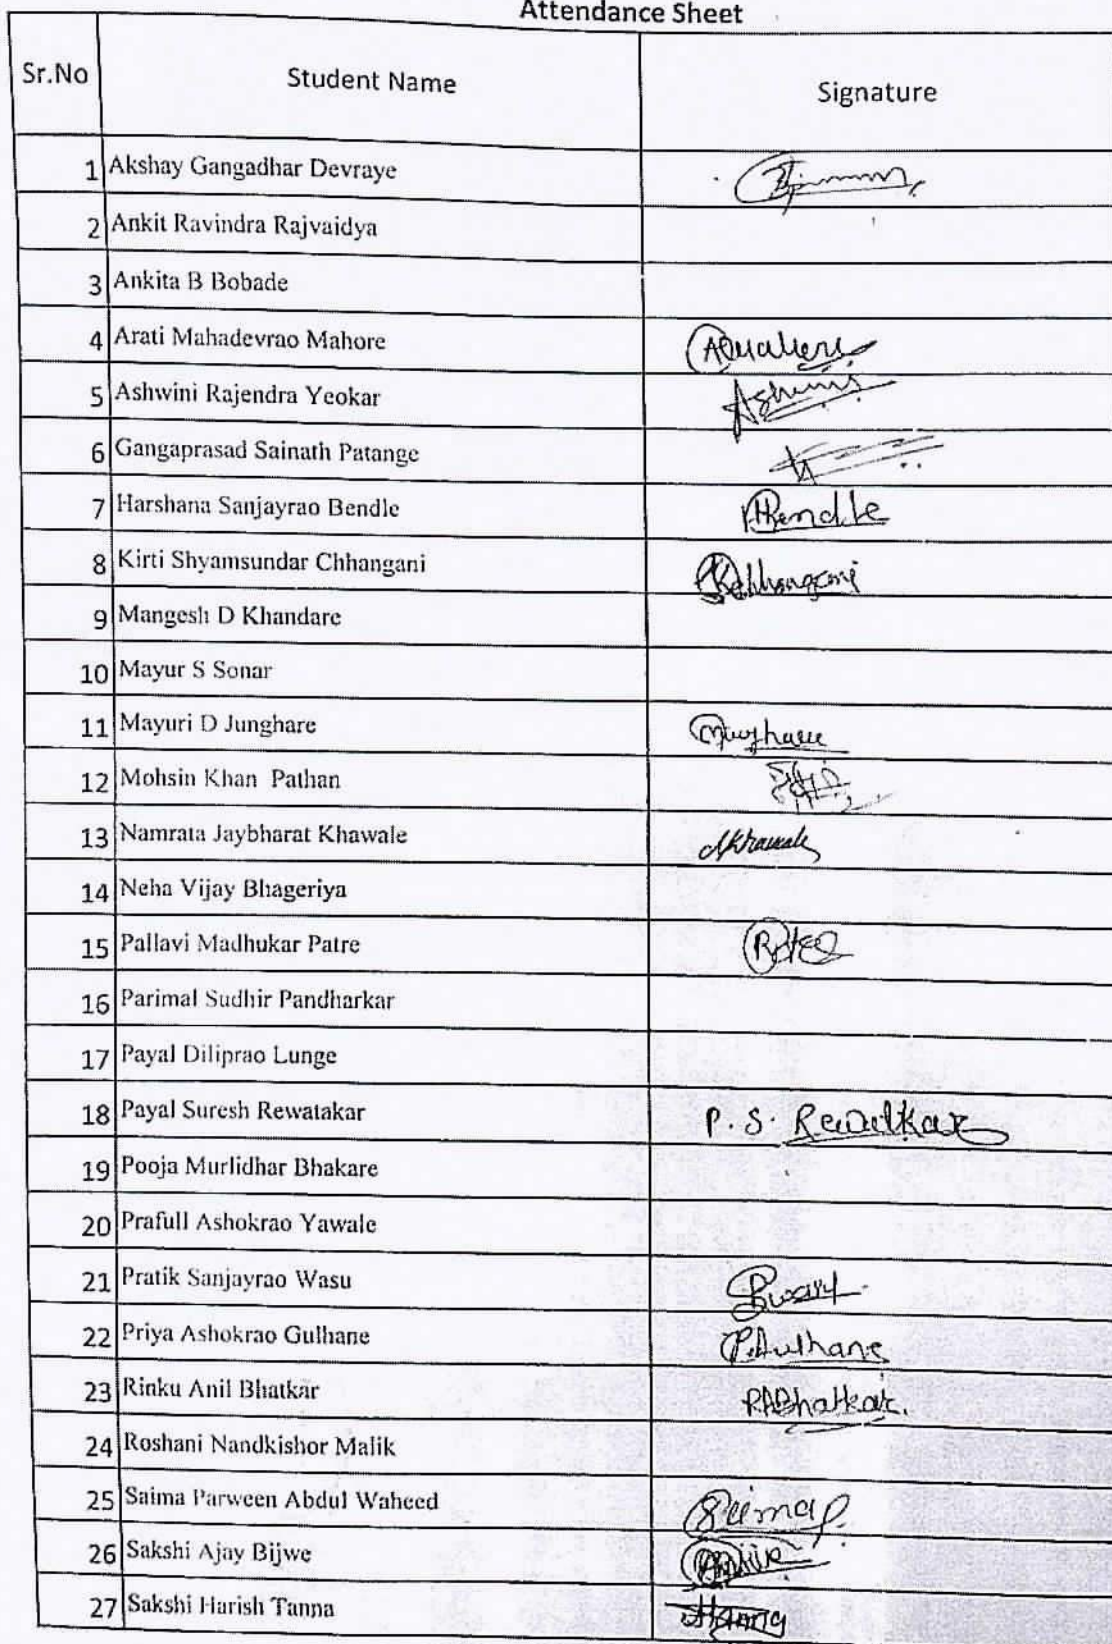 Attendance Sheet
Sr.No Student Name Signature
1 Akshay Gangadhar Devraye
2 Ankit Ravindra Rajvaidya
3 Ankita B Bobade
4 Arati Mahadevrao Mahore
5 Ashwini Rajendra Yeokar Ashwini
6 Gangaprasad Sainath Patange
7 Harshana Sanjayrao Bendle HBendle
8 Kirti Shyamsundar Chhangani KChhangani
9 Mangesh D Khandare
10 Mayur S Sonar
11 Mayuri D Junghare
12 Mohsin Khan Pathan
13 Namrata Jaybharat Khawale NKhawale
14 Neha Vijay Bhageriya
15 Pallavi Madhukar Patre
16 Parimal Sudhir Pandharkar
17 Payal Diliprao Lunge
18 Payal Suresh Rewatakar P. S. Rewatkar
19 Pooja Murlidhar Bhakare
20 Prafull Ashokrao Yawale
21 Pratik Sanjayrao Wasu
22 Priya Ashokrao Gulhane
23 Rinku Anil Bhatkar RABhatkar.
24 Roshani Nandkishor Malik
25 Saima Parween Abdul Waheed
26 Sakshi Ajay Bijwe
27 Sakshi Harish Tanna